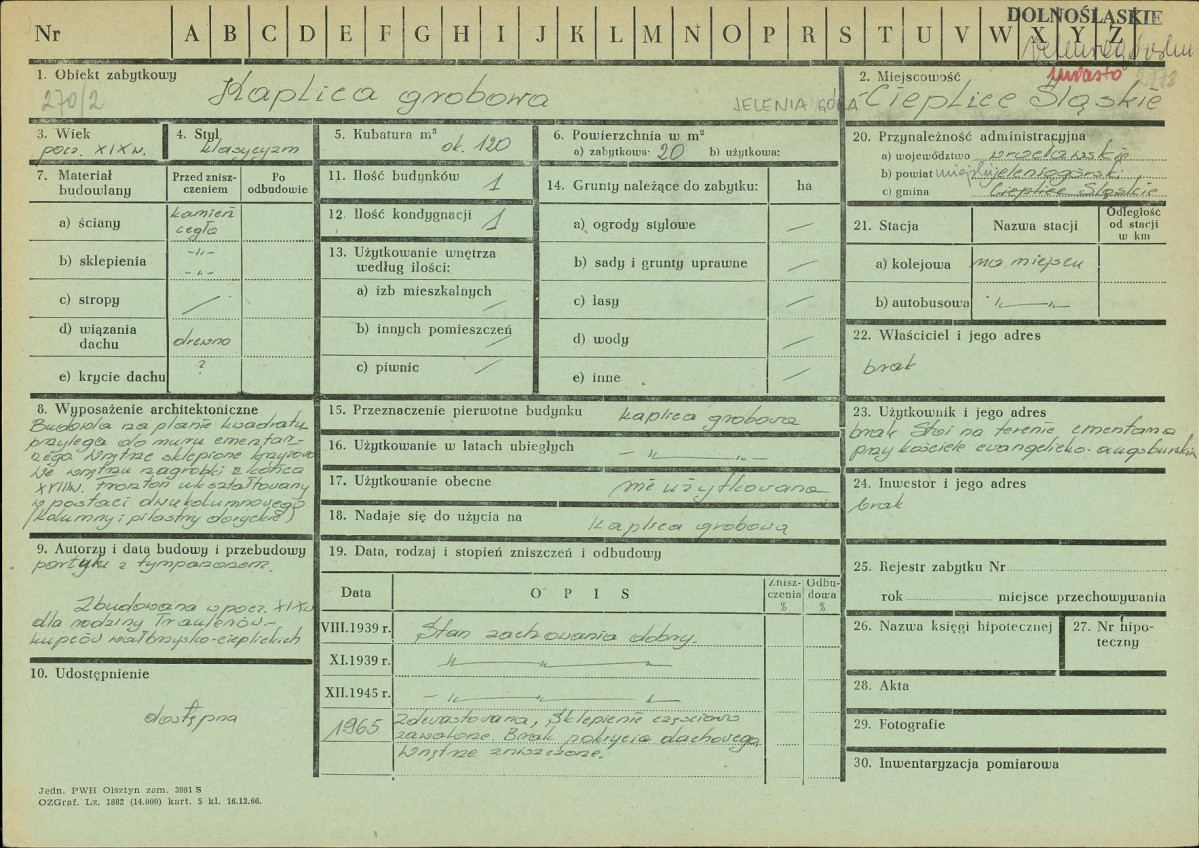 DOLNOŚLĄSKIE
Nr A B C D E F G H I J K L M N O P R S T U V W X Y Z
1. Obiekt zabytkowy
270/2
Kaplica grobowa
2. Miejscowość
miasto 2178
JELENIA GÓRA - Cieplice Śląskie
3. Wiek
pocz. XIX w.
4. Styl
klasycyzm
5. Kubatura m³
ok. 120
6. Powierzchnia w m²
a) zabytkowa· 20 b) użytkowa:
7. Materiał budowlany
Przed zniszczeniem
Po odbudowie
a) ściany kamień cegła
b) sklepienia -"- -"-
c) stropy /
d) wiązania dachu drewno
e) krycie dachu ?
8. Wyposażenie architektoniczne
Budowla na planie kwadratu
przylega do muru cmentar-
nego. Wnętrze sklepione krzyżowo
We wnętrzu nagrobki z końca
XVIII w. Fronton ukształtowany
w postaci dwukolumnowego
(kolumny i pilastry doryckie)
9. Autorzy i data budowy i przebudowy
portyku z tympanonem.
Zbudowana w pocz. XIX w
dla rodziny
kupców wałbrzysko-cieplickich
10. Udostępnienie
dostępna
11. Ilość budynków 1
12. Ilość kondygnacji 1
13. Użytkowanie wnętrza według ilości:
a) izb mieszkalnych /
b) innych pomieszczeń /
c) piwnic /
14. Grunty należące do zabytku: ha
a) ogrody stylowe /
b) sady i grunty uprawne /
c) lasy /
d) wody /
e) inne /
15. Przeznaczenie pierwotne budynku kaplica grobowa
16. Użytkowanie w latach ubiegłych - " -
17. Użytkowanie obecne nie użytkowana
18. Nadaje się do użycia na kaplica grobową
19. Data, rodzaj i stopień zniszczeń i odbudowy
Data O P I S Zniszczenia % Odbudowa %
VIII.1939 r. Stan zachowania dobry.
XI.1939 r. " — " — "
XII.1945 r. - " — " — "
1965 Zdewastowana, Sklepienie częściowo
zawalone. Brak pokrycia dachowego,
Wnętrze zniszczone.
20. Przynależność administracyjna
a) województwo wrocławskie
b) powiat jeleniogórski
c) gmina Cieplice Śląskie
21. Stacja Nazwa stacji Odległość od stacji w km
a) kolejowa na miejscu
b) autobusowa " — "
22. Właściciel i jego adres
brak
23. Użytkownik i jego adres
brak Stoi na terenie cmentarza
przy kościele ewangelicko-augsburskim
24. Inwestor i jego adres
brak
25. Rejestr zabytku Nr
rok miejsce przechowywania
26. Nazwa księgi hipotecznej
27. Nr hipoteczny
28. Akta
29. Fotografie
30. Inwentaryzacja pomiarowa
Jedn. PWH Olsztyn zam. 3991 S
OZGraf. Lz. 1882 (14.000) kart. 5 kl. 16.12.66.